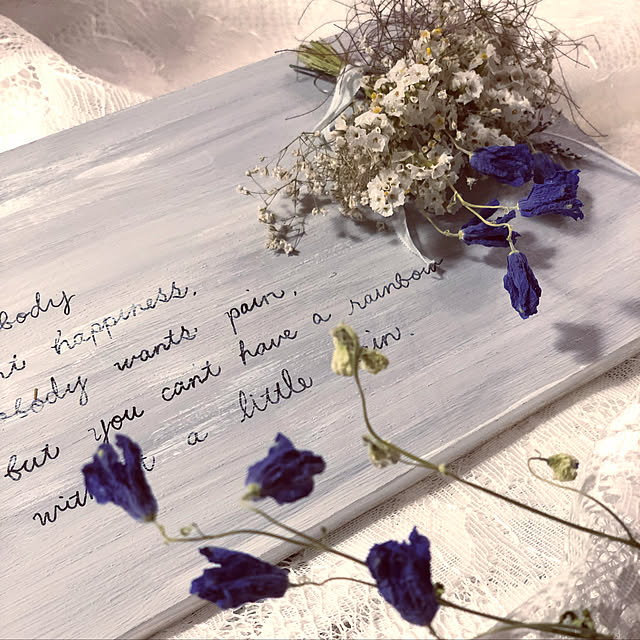 body
happiness.
nobody wants pain,
but you can't have a rainbow
a little